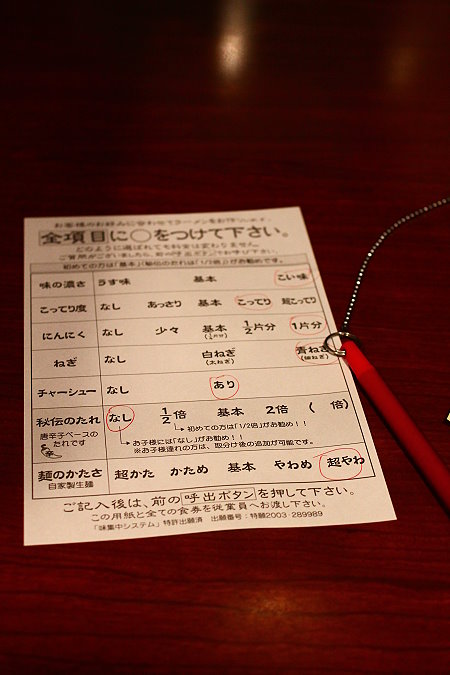 お客様のお好みに合わせてラーメンをお作りします。
全項目に○をつけて下さい。
どのように選ばれても料金は変わりません。
ご質問がございましたら、前の呼出ボタンでお呼び下さい。
初めての方は「基本」(秘伝のたれは「1/2倍」)がお勧めです。
味の濃さ うす味 基本 こい味
こってり度 なし あっさり 基本 こってり 超こってり
にんにく なし 少々 基本 1/2片分 1片分
(1/4片分)
ねぎ なし 白ねぎ 青ねぎ
(太ねぎ) (細ねぎ)
チャーシュー なし あり
秘伝のたれ なし 1/2倍 基本 2倍 ( 倍)
唐辛子ベースの
たれです
初めての方は「1/2倍」がお勧め!!
お子様には「なし」がお勧め!!
※お子様連れの方は、取分け後の追加が可能です。
麺のかたさ 超かた かため 基本 やわめ 超やわ
自家製生麺
ご記入後は、前の呼出ボタンを押して下さい。
この用紙と全ての食券を従業員へお渡し下さい。
「味集中システム」特許出願済 出願番号:特願2003-289989